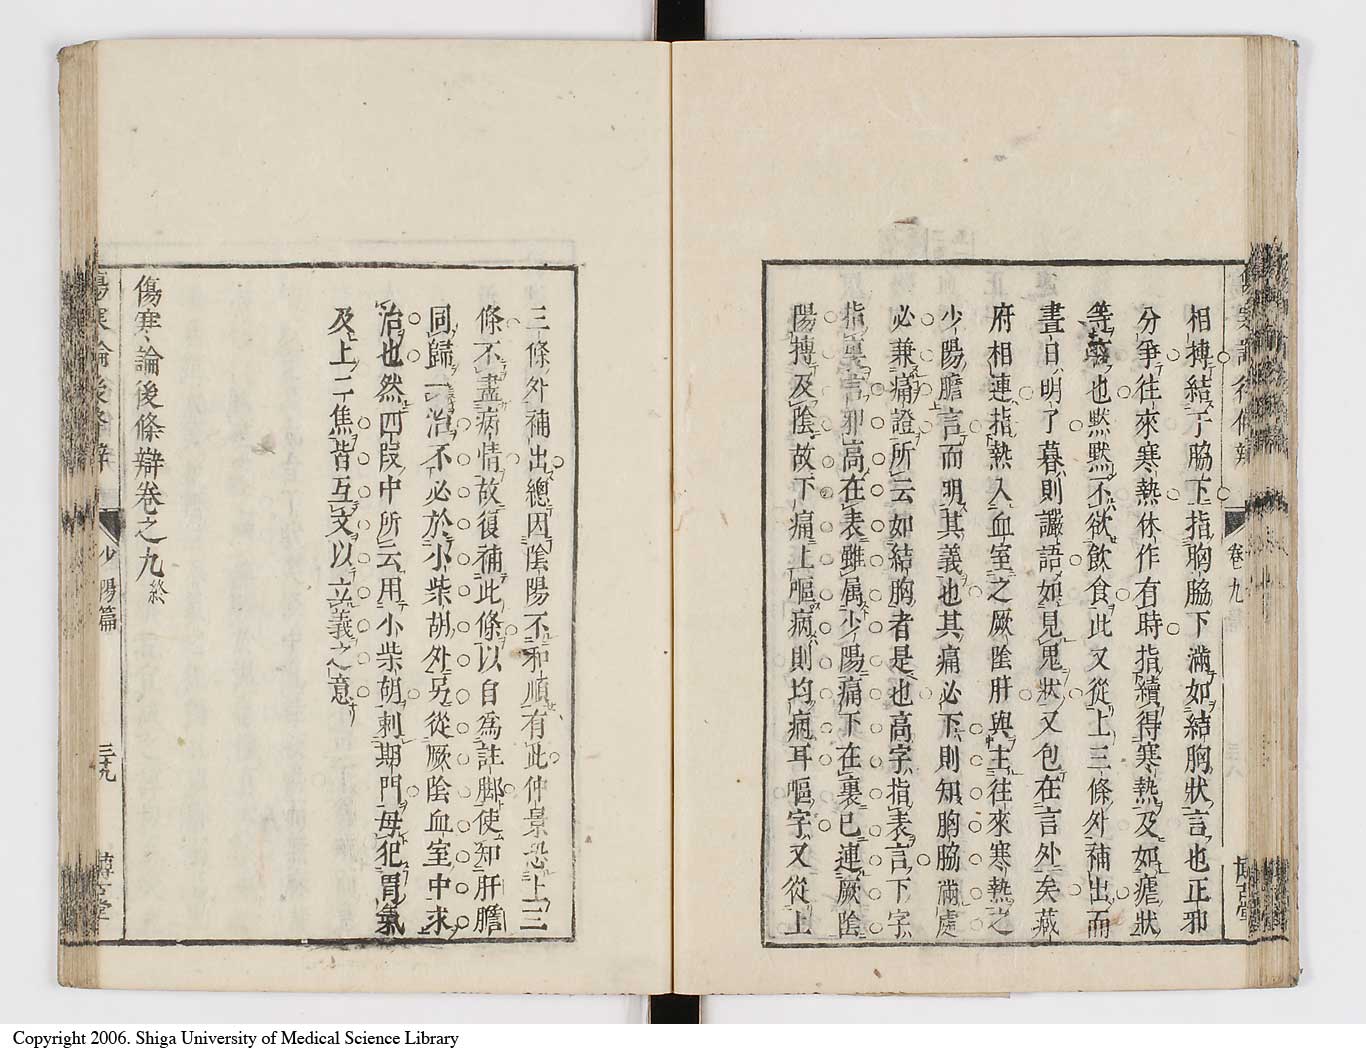 相搏結于脇下指胸脇下滿如結胸狀言也正邪
分爭往來寒熱休作有時指續得寒熱及如瘧狀
等證也默默不欲飲食此又從上三條外補出而
晝日明了暮則讝語如見鬼狀又包在言外矣藏
府相連指熱入血室之厥陰肝與主往來寒熱之
少陽膽言而明其義也其痛必下則知胸脇滿處
必兼痛證所云如結胸者是也高字指表言下字
指裏言邪高在表雖属少陽痛下在裏已連厥陰
陽搏及陰故下痛上嘔病則均病耳嘔字又從上
卷九
三條外補出總因陰陽不和順有此仲景恐上三
條不盡病情故復補此條以自為註脚使知肝膽
同歸一治不必於小柴胡外另從厥陰血室中求
治也然四段中所云用小柴胡刺期門毋犯胃氣
及上二焦皆互文以立義之意
傷寒論後條辯卷之九終
傷寒論後條辯
少陽篇
三十九
博古堂
Copyright 2006. Shiga University of Medical Science Library